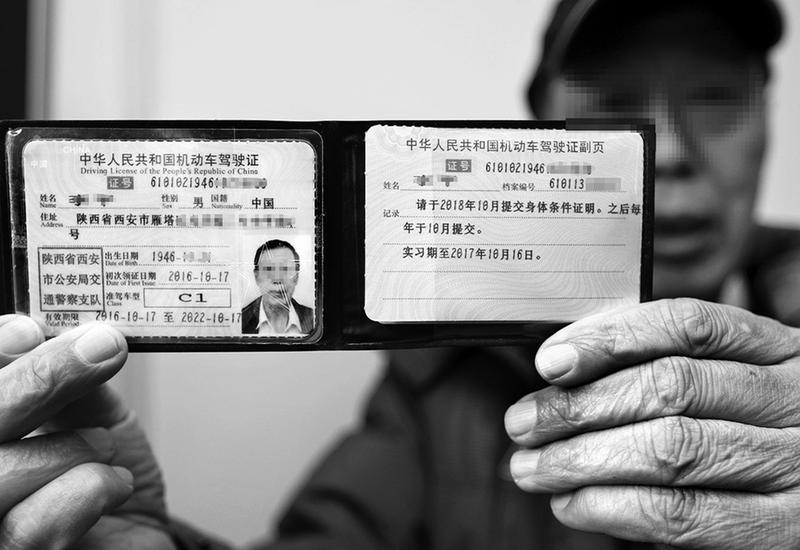 中华人民共和国机动车驾驶证
Driving License of the People's Republic of China
证号 6101021946
姓名 性别 男 国籍 中国
Name Sex Nationality
住址 陕西省西安市雁塔
Address
号
陕西省西安
市公安局交
通警察支队
出生日期 1946-
Date of Birth
初次领证日期 2016-10-17
Date of First Issue
准驾车型 C1
Class
有效期限 2016-10-17 至 2022-10-17
Valid Period
中华人民共和国机动车驾驶证副页
证号 6101021946
姓名 档案编号 610113
请于2018年10月提交身体条件证明。之后每
记录
年于10月提交。
实习期至2017年10月16日。